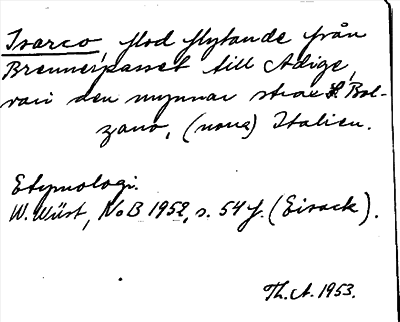 Isarco, flod flytande från
Brennerpasset till Adige,
vari den mynnar strax S. Bol-
zano, (norra) Italien.
Etymologi.
W. Wüst, NoB 1952, s. 54 f. (Eisack).
Th. A. 1953.